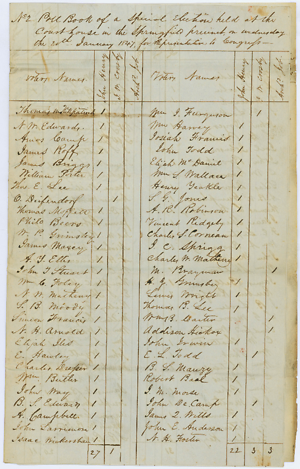 No 2 Poll Book of a Special Election held at the
Court house in the Springfield precinct, on wednesday
the 20th January 1847, for Representative to Congress
Voters Names. John Henry Voters Names John Henry
N. W. Edwards. 1 Wm Harvey 1
Amos Camp 1 Josiah Francis 1
James Roff 1 John Todd 1
James Briggs 1 Elijah Mc Daniel 1
William Porter 1 Wm S Wallace 1
Thos. E. Lee 1 Henry Yeakle 1
1 S. G. Jones 1
Thomas 1 A. R. Robinson 1
Philo Beers 1 Vincent Ridgely 1
W. P. Grimsley 1 Charles S. Corneau 1
James Maxey 1 J C Sprigg 1
A. J. Ellis 1 Charles W. Matheny 1
John T Stuart 1 M. Brayman 1
Wm C. Foley 1 H. G. Grimsley 1
N. W. Matheny 1 Lewis Wright 1
S. B. Moody 1 Thomas P. Lee 1
Simeon Francis 1 1
N. H. Arnold 1 Addison Hickox 1
Elijah Iles 1 John 1
E. Hawley 1 E L Todd 1
Charles 1 B. S. Mauzy 1
Wm Butler 1 Robert Beal 1
John Way 1 J. M. Morse 1
B. S. Edwards 1 John De Camp 1
A. Campbell 1 James D. Wells 1
John Larrimore 1 John E. Anderson 1
Isaac 1 N. H. Foster 1
27 1 22 3 3